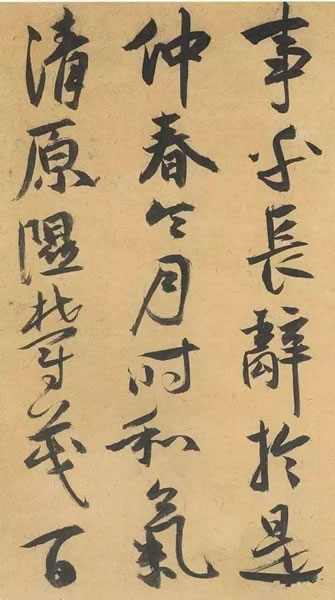 事乎長辭於是
仲春令月时和氣
清原隰鬱茂百